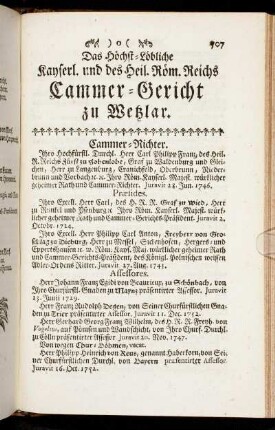 )o( 707
Das Höchst-Löbliche
Kayserl. und des Heil. Röm. Reichs
Cammer-Gericht
zu Wetzlar.
Cammer-Richter.
Ihro Hochfürstl. Durchl. Herr Carl Philipp Franz, des Heil.
R. Reichs Fürst zu Hohenlohe, Graf zu Waldenburg und Glei-
chen, Herr zu Langenburg, Cranichfeld, Oberbrunn, Nieder-
brunn und Vorbach ꝛc. ꝛc. Ihro Röm. Kayserl. Majest. würklicher
geheimer Rath und Cammer-Richter. Juravit 23. Jun. 1746.
Præsides.
Ihro Excell. Herr Carl, des H. R. R. Graf zu Wied, Herr
zu Runkel und Ysenburg ꝛc. Ihro Röm. Kayserl. Majest. würk-
licher geheimer Rath und Cammer-Gerichts-Präsident. Juravit 2.
Octobr. 1724.
Ihro Excell. Herr Philipp Carl Anton, Freyherr von Gro-
schlag zu Dieburg, Herr zu Messel, Sickenhofen, Hergers- und
Eppertshausen ꝛc. ꝛc. Röm. Kays. Maj. würklicher geheimer Rath
und Cammer-Gerichts-Präsident, des Königl. Polnischen weissen
Adler-Ordens Ritter. Juravit 27. Aug. 1741.
Assessores.
Herr Johann Franz Egidi von Beaurieux, zu Schönbach, von
Ihro Churfürstl. Gnaden zu Maynz präsentirter Assessor. Juravit
23. Junii 1729.
Herr Franz Rudolph Degen, von Seiner Churfürstlichen Gna-
den zu Trier präsentirter Assessor. Juravit 11. Dec. 1752.
Herr Gerhard Georg Franz Wilhelm, des H. R. R. Freyh. von
auf Pömsen und Wandschicht, von Ihro Churf. Durchl.
zu Cölln präsentirter Assessor. Juravit 20. Nov. 1747.
Von wegen Chur-Böhmen, vacat.
Herr Philipp Heinrich von Reuss, genannt Haberkorn, von Sei-
ner Churfürstlichen Durchl. von Bayern präsentirter Assessor.
Juravit 16. Oct. 1752.